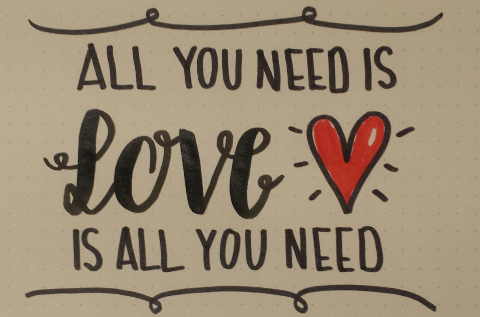 ALL YOU NEED IS
Love
IS ALL YOU NEED